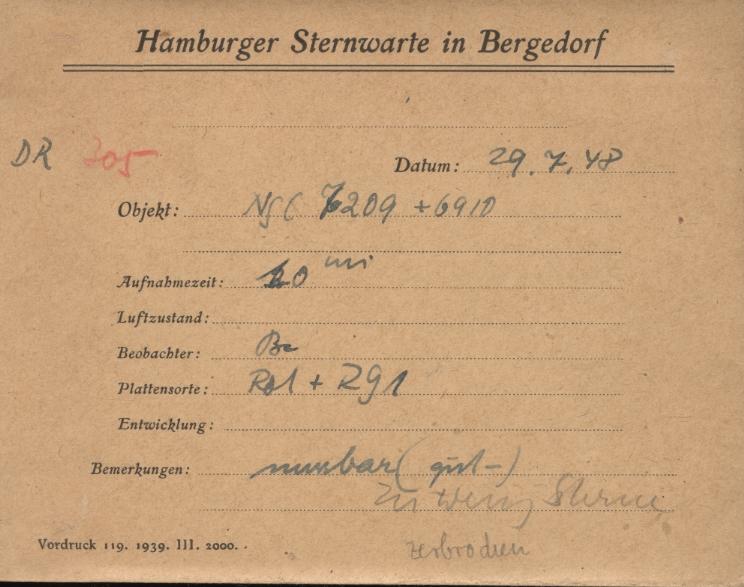 Hamburger Sternwarte in Bergedorf
DR 305
Datum: 29.7.48
Objekt: NGC 7209 + 6910
Aufnahmezeit: 20 min
Luftzustand:
Beobachter: Be
Plattensorte: + Rg1
Entwicklung:
Bemerkungen: (gut-)
Zu wenig Sterne
Vordruck 119. 1939. III. 2000.
zerbrochen